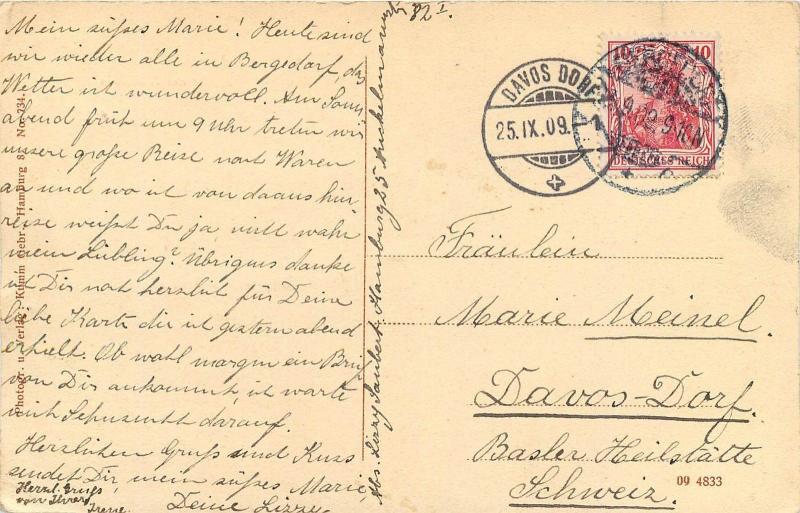 Mein süßes Marie! Heute sind
wir wieder alle in Bergedorf, das
Wetter ist wundervoll. Am Sonn
abend früh um 9 Uhr treten wir
unsere große Reise nach Waren
an und wo ich von da aus hin
reise weißt Du ja, nicht wahr
mein Liebling? Übrigens danke
ich Dir noch herzlich für Deine
liebe Karte die ich gestern abend
erhielt. Ob wohl morgen ein Brief
von Dir ankommt, ich warte
mit Sehnsucht darauf.
Herzlichen Gruß und Kuss
sendet Dir, mein süßes Marie
Deine Lizzy.
Herzl. Gruß
von Ihrer
Irene.
Photogr. u. Verlag: Gebr. Hamburg 8. No. 734.
Abs. Lizzy Hamburg 25
32 I.
DAVOS DORF
25.IX.09.
10 10
DEUTSCHES REICH
Fräulein
Marie Meinel.
Davos-Dorf.
Basler Heilstätte
Schweiz.
09 4833